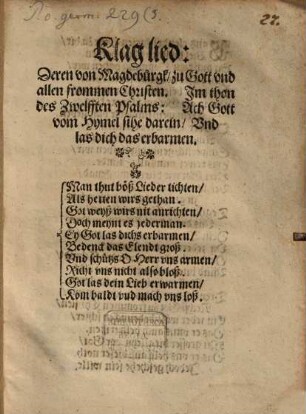 No. germ 229(5.
27.
Klag lied:
Deren von Magdebürgk/ zu Gott vnd
allen frommen Christen. Im thon
des Zwelfften Psalms: Ach Gott
vom Hymel sihe darein/ Vnd
las dich das erbarmen.
Man thut böß Lieder tichten/
Als hetten wirs gethan.
Got weyß wirs nit anrichten/
Doch meynt es jederman.
Ey Got las dichs erbarmen/
Bedenck das Elendt groß.
Vnd schütz O Herr vns armen/
Nicht vns nicht also bloß.
Got las dein Lieb erwarmen/
Kom baldt vnd mach vns loß.